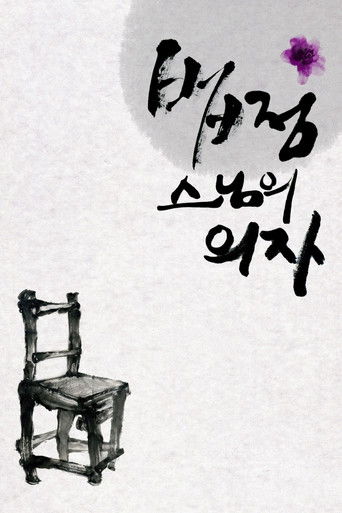 법정
스님의
의자